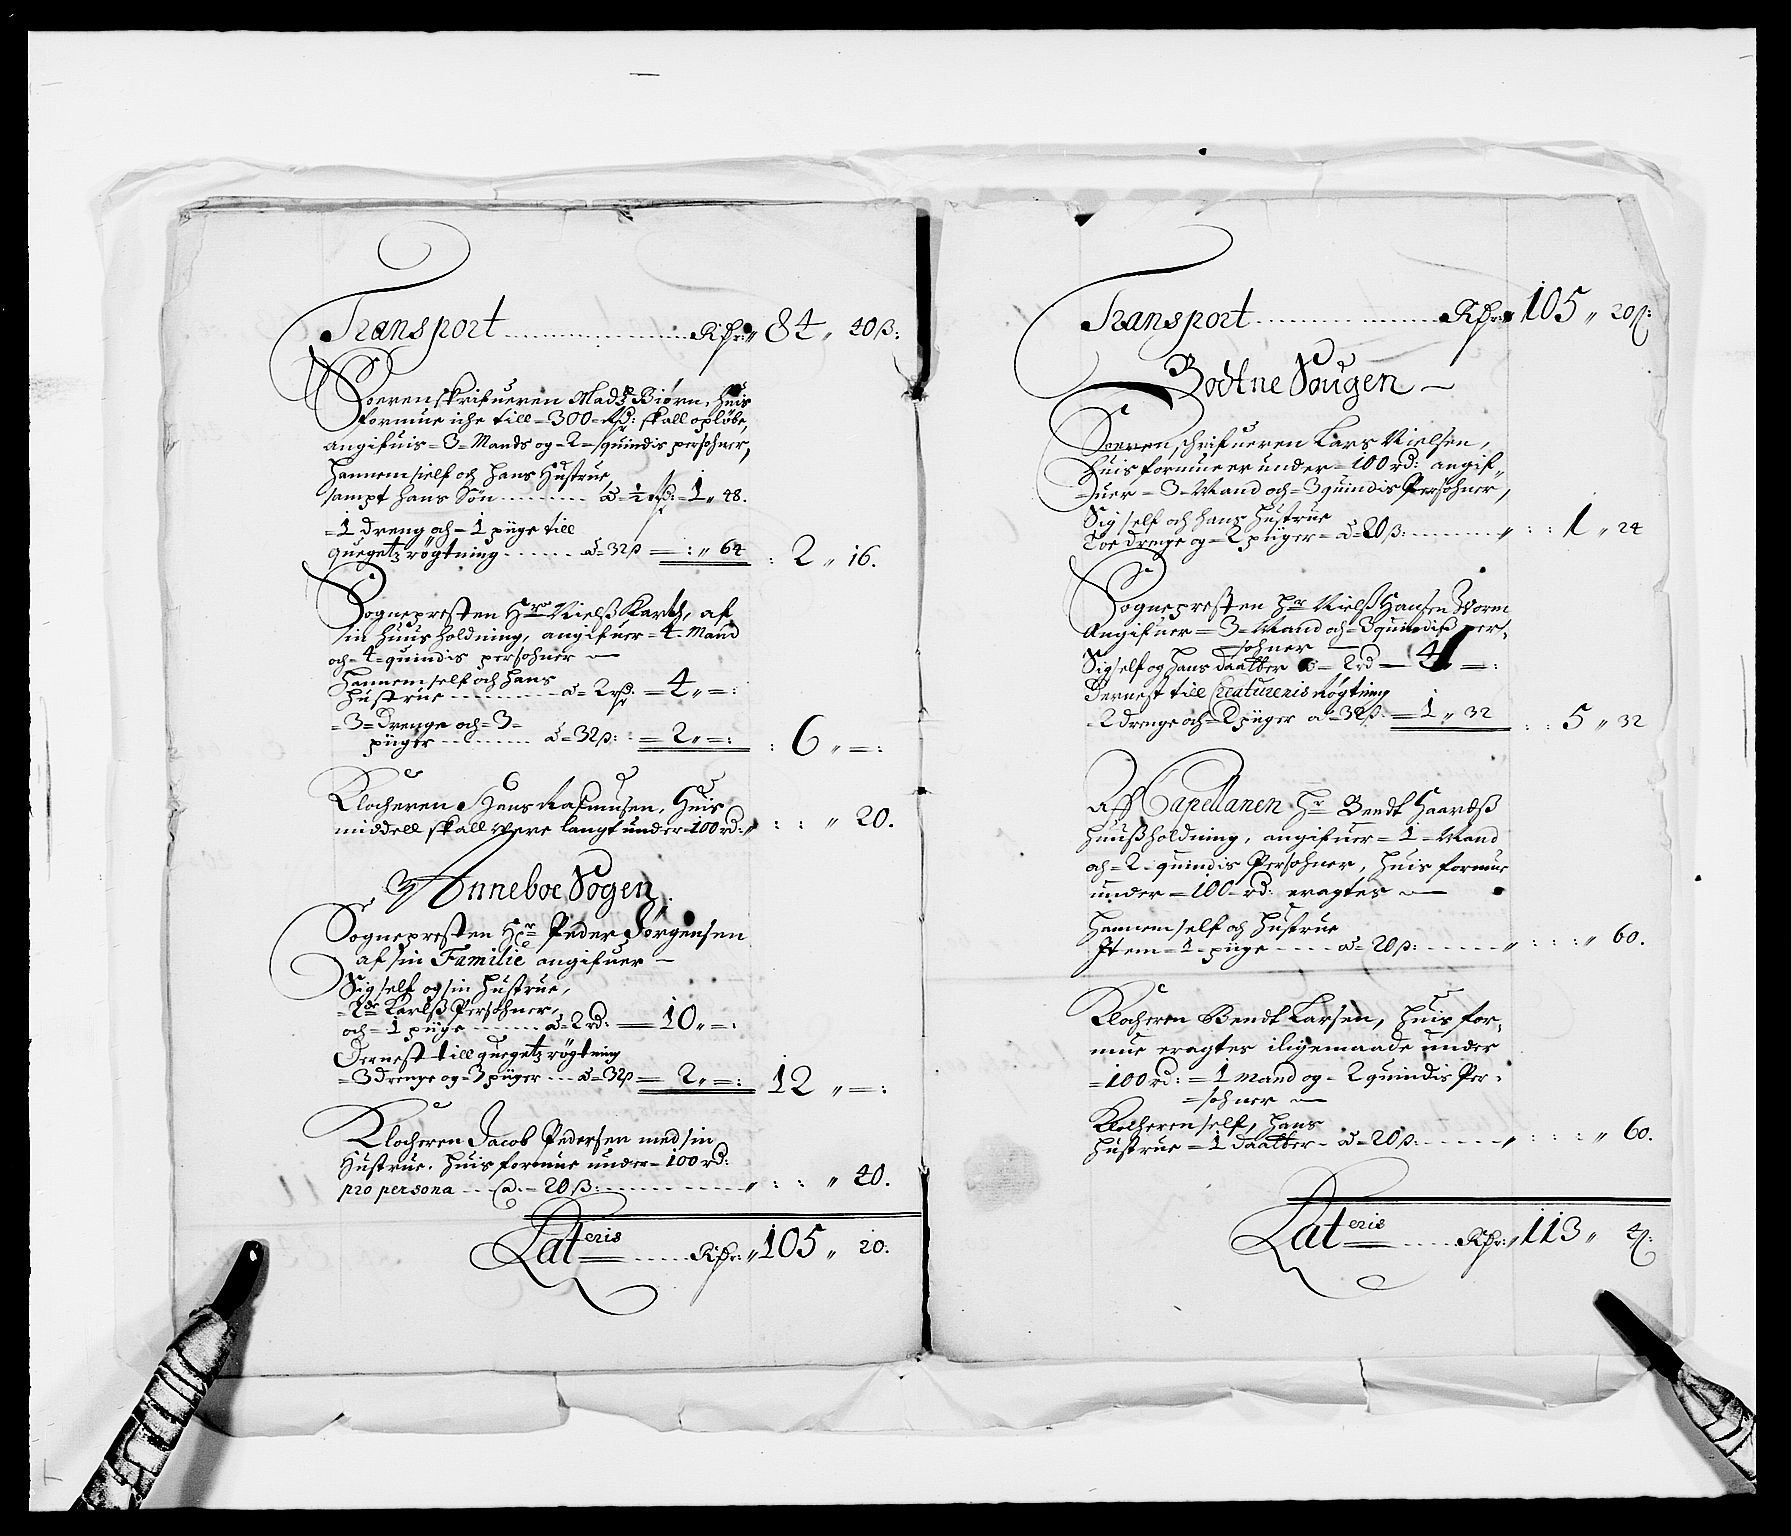 Transport ........ Rdr: 84 „ 40 ß:
Soerenskrifueren Madß Biørn, huis
formue iche till = 300 = Rdr: skall opløbe,
angifuis = 3 = Mands og = 2 = quindis persohner,
Hannem sielf och hans Hustrue,
sampt hans Søn ........ à = ½ rdr = 1 „ 48.
= 1 dreng och = 1 piige till
quegetz røgtning ........ à = 32 ß = : „ 64 : 2 „ 16.
Sognepresten Hr Nielß Karth, af
sin huusholdning, angifuer = 4 = Mand
och = 4 = quindis persohner
Hannem self och hans
Hustrue ........ à = 2 rdr: = 4 „ = :
= 3 = drenge och = 3 =
piiger ........ à = 32 ß: = 2 „ = : : 6 „ = :
Klocheren Jens Rasmusen, Huis
middell skall were langt under = 100 rd: „ : : „ 20.
Anneboe Sogen
Sognepresten Hr Peder Jørgensen
af sin Familie angifuer
Sig self og sin Hustrue,
= 2de Karlß Persohner,
och = 1 piige ........ à = 2 rd: = 10 „ = :
Dernest till quegetz røgtning
= 3 drenge og = 3 piiger .... à = 32 ß = 2 „ = : 12 „ = :
Klocheren Jacob Pedersen med sin
Hustrue. Huis formue under = 100 rd:
pro persona .... à = 20 ß: ........ „ : : „ 40.
Lateris ..... Rdr: „ 105 „ 20:
Transport ........ Rdr: 105 „ 20 ß:
Bodtne Sougen
Soerenschrifueren Lars Nielsen,
Huis formue er under = 100 rd: angif=
= uer = 3 = Mand och = 3 quindis Persohner,
Sig self och hans Hustrue
Toe drenge og = 2 piiger = à = 20 ß: ........ „ : : 1 „ 24
Sognepresten Hr Nielß Hansen Worm
Angifuer = 3 = Mand och = 3 quindiß per=
= sohner
Sig self og hans daatter à = 2 rd = 4 = :
Dernest till Creaturenis Røgtning
= 2 drenge och = 2 piiger à = 32 ß: = 1 „ 32 : : 5 „ 32
Aff Capellanen Hr Bendt Haardß
Huußholdning, angifuer = 1 = Mand
och = 2 = quindis Persohner, huis formue
under = 100 = rd: eragtes
Hannem self och Hustrue
Item = 1 = piige ..... à = 20 ß: ..... „ : : : „ 60.
Klocheren Bendt Larsen, huis for=
mue eragtes iligemaade under
= 100 rd: = 1 mand og = 2 quindis Per=
= sohner
Klocheren self, hans
Hustrue = 1 daatter = à = 20 ß: ..... „ : : : „ 60.
Lateris ..... Rdr: „ 113 „ 4 ß: